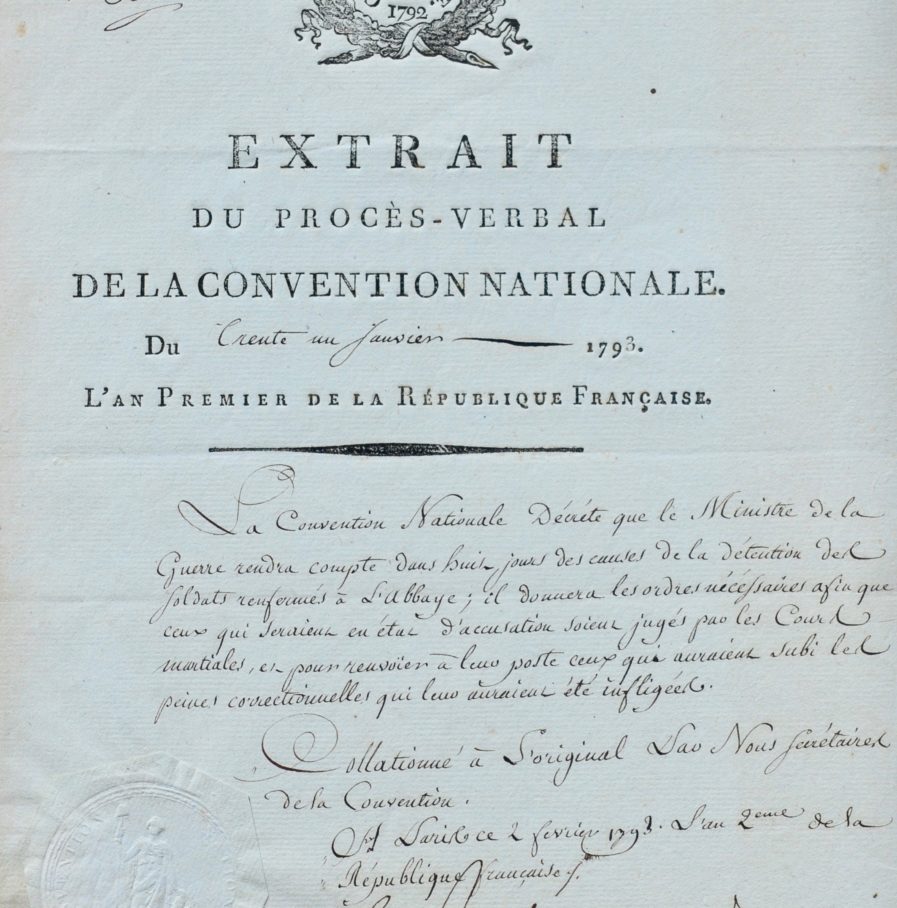 1792
EXTRAIT
DU PROCÈS-VERBAL
DE LA CONVENTION NATIONALE.
Du Trente un Janvier 1793.
L'AN PREMIER DE LA RÉPUBLIQUE FRANÇAISE.
La Convention Nationale Décréte que le Ministre de la
Guerre rendra compte dans huit jours des causes de la détention des
soldats renfermés à L'Abbaye; il donnera les ordres nécessaires afin que
ceux qui seraient en état d'accusation soient jugés par les Cours
martiales, et pour renvoier à leur poste ceux qui auraient subi les
peines correctionnelles qui leur auraient été infligées.
Collationné à L'original Par Nous secrétaires
de la Convention.
A Paris ce 2 fevrier 1793. L'an 2eme de la
République française.